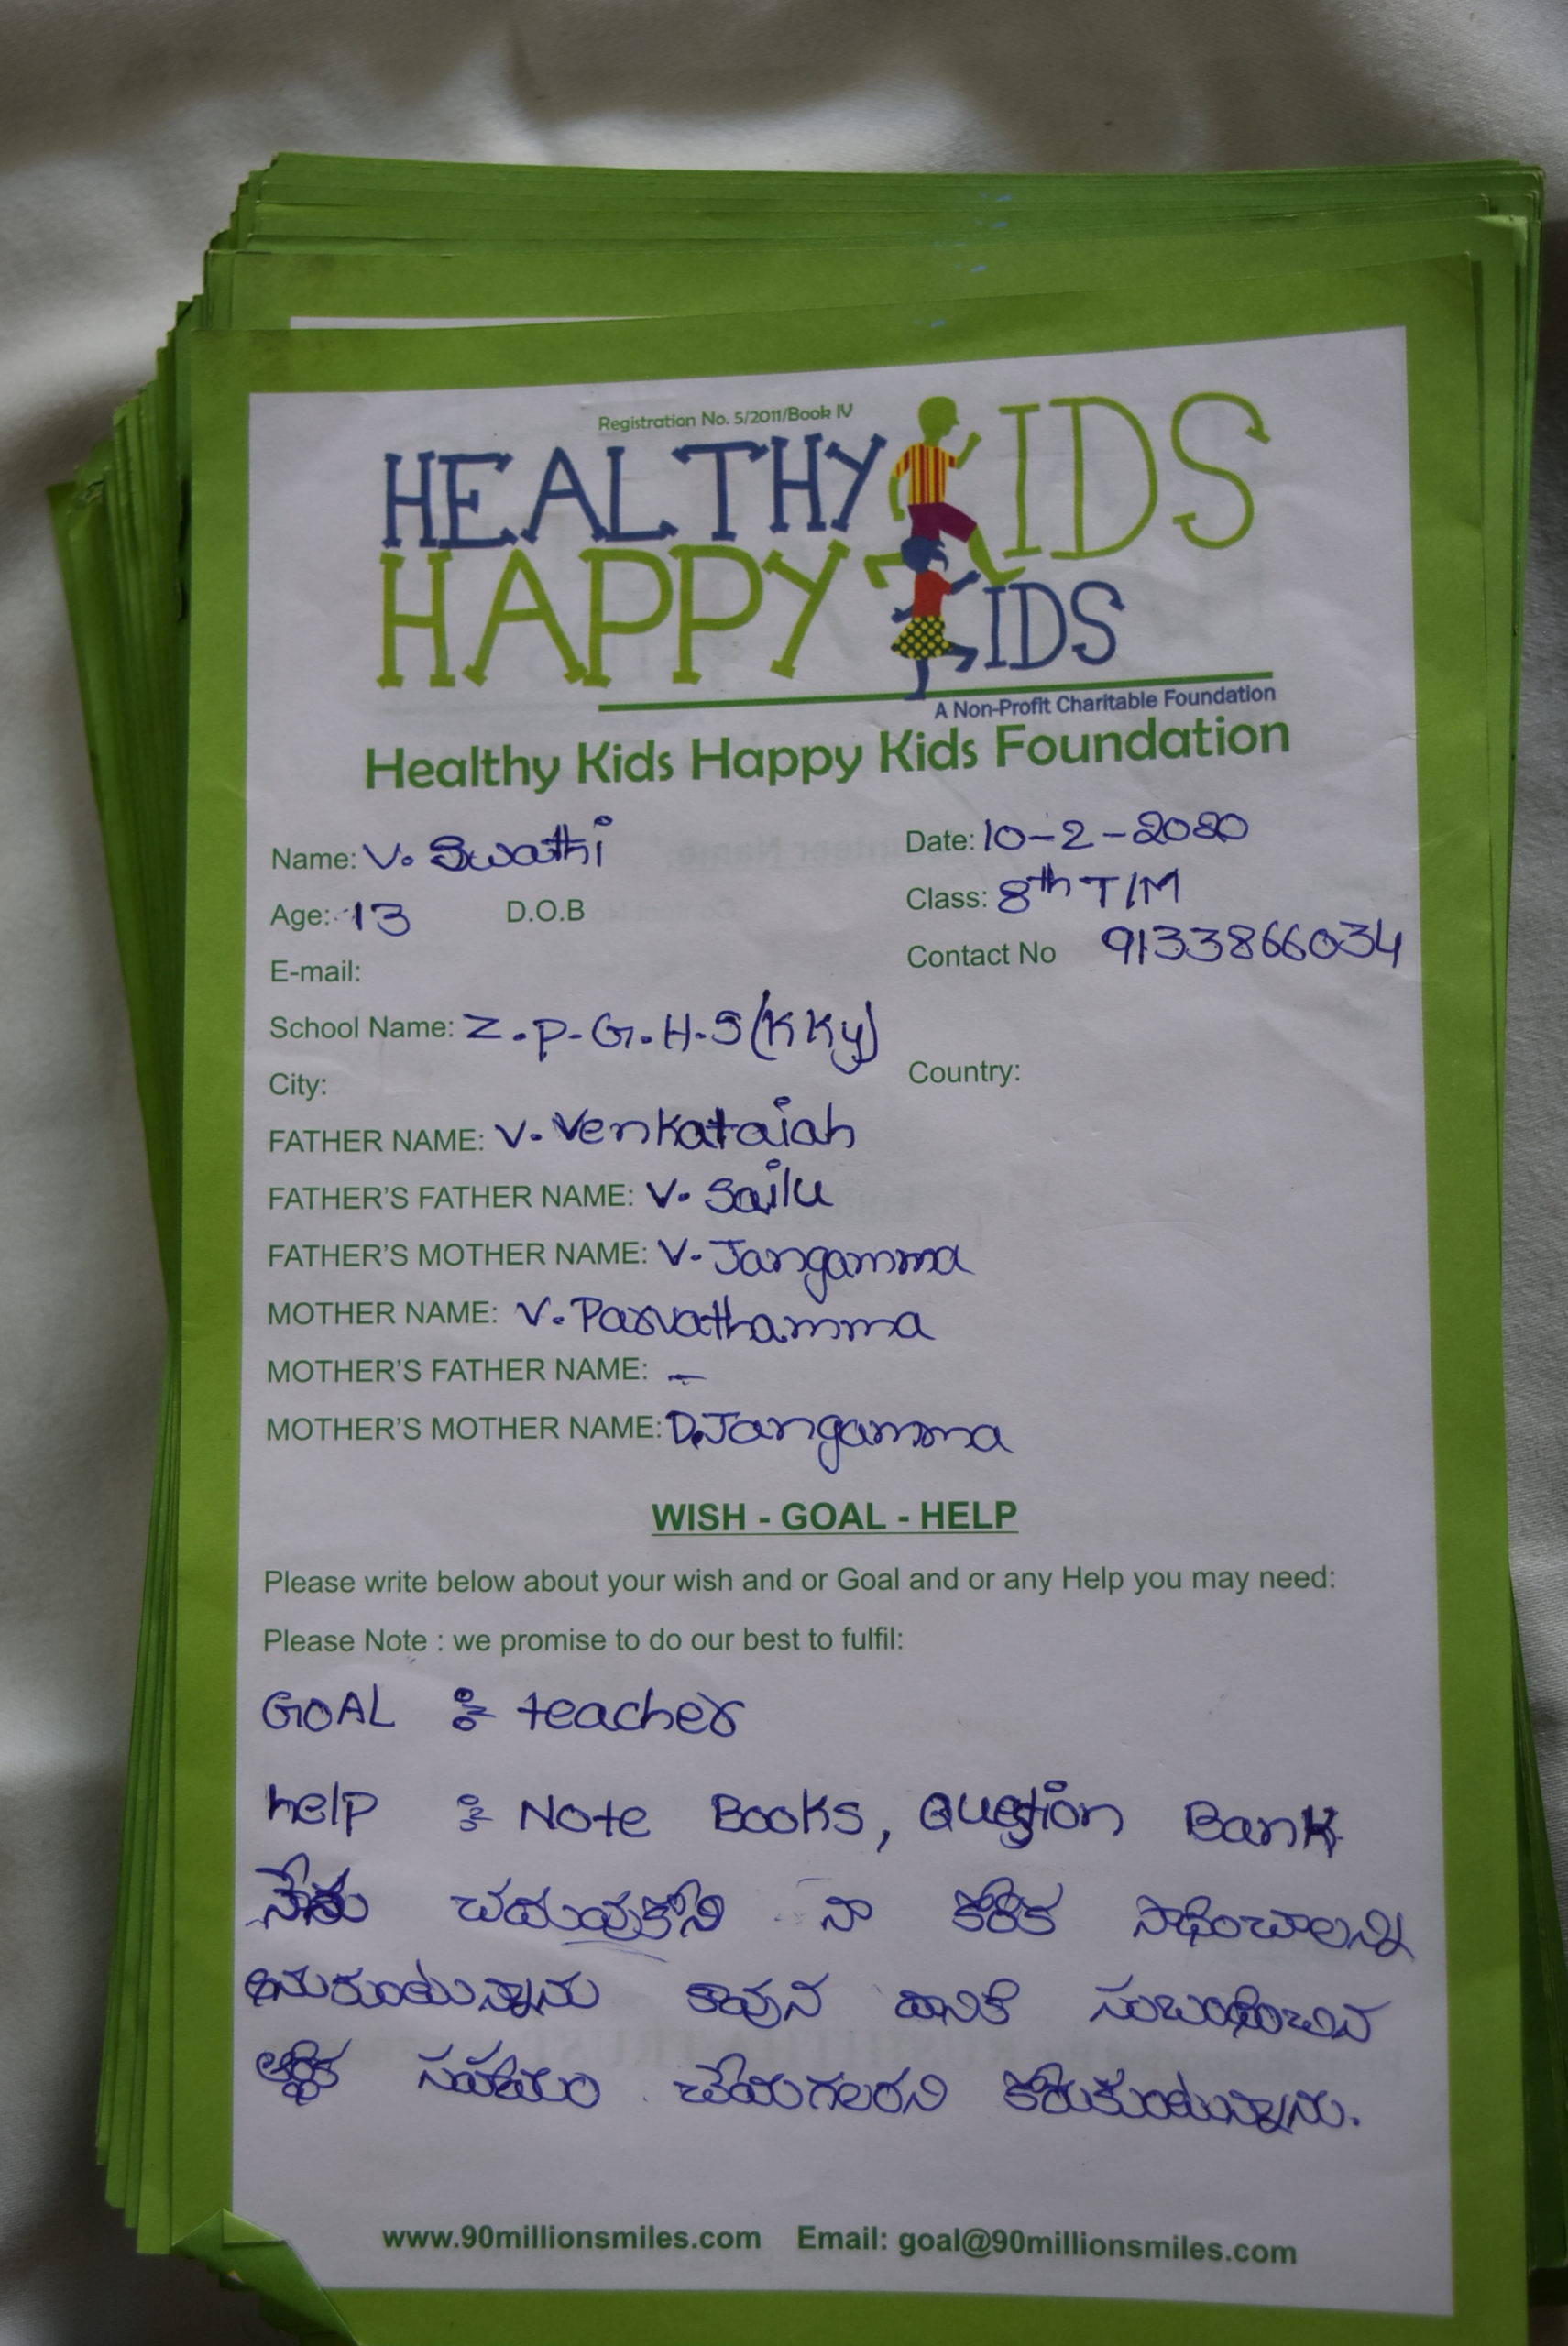 Registration No. 5/2011/Book IV
HEALTHY KIDS
HAPPY KIDS
A Non-Profit Charitable Foundation
Healthy Kids Happy Kids Foundation
Name: V. Swathi Date: 10-2-2020
Age: 13 D.O.B Class: 8th T/M
E-mail: Contact No 9133866034
School Name: Z.P.G.H.S (KKY)
City: Country:
FATHER NAME: V. Venkataiah
FATHER'S FATHER NAME: V. Sailu
FATHER'S MOTHER NAME: V. Jangamma
MOTHER NAME: V. Parvathamma
MOTHER'S FATHER NAME: -
MOTHER'S MOTHER NAME: D. Jangamma
WISH - GOAL - HELP
Please write below about your wish and or Goal and or any Help you may need:
Please Note : we promise to do our best to fulfil:
GOAL : teacher
help : Note Books, Question Bank
నేను చదువుకోని నా కోరిక సాధించాలన్ని
అనుకుంటున్నాను కావున దానికి సంబంధించిన
ఆర్థిక సహాయం చేయగలరని కోరుకుంటున్నాను.
www.90millionsmiles.com Email: goal@90millionsmiles.com